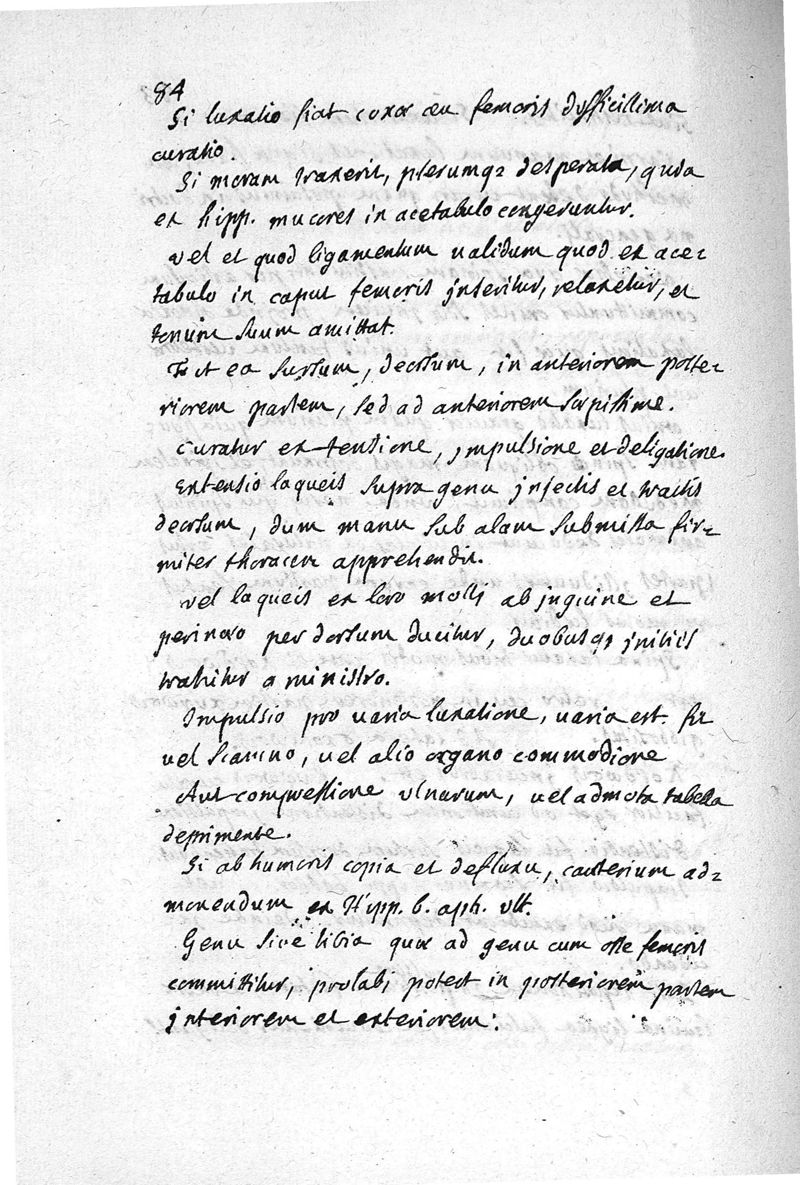 84
Si luxatio fiat coxae seu femoris difficillima
curatio.
Si moram traxerit, plerumq; desperata, quia
ex hipp. mucores in acetabulo congeruntur.
vel et quod ligamentum ualidum quod ex ace=
tabulo in caput femoris inseritur, relaxetur, et
tonum suum amittat.
Fit ea sursum, deorsum, in anteriorem poste=
riorem partem, sed ad anteriorem saepissime.
curatur extensione, impulsione et deligatione.
Extensio laqueis supra genu injectis et tractis
deorsum, dum manu sub alam submissa fir=
miter thoracem apprehendit.
vel laqueis ex loro molli ab inguine et
perinaeo per dorsum ducitur, duobusq; initiis
trahitur a ministro.
Impulsio pro uaria luxatione, uaria est. fit
uel scamno, uel alio organo commodiore
Aut compressione ulnarum, uel admota tabella
deprimente.
Si ab humoris copia et defluxu, cauterium ad=
movendum ex Hipp. 6. aph. ult.
Genu sive tibia quae ad genu cum osse femoris
committitur, prolabi potest in posteriorem partem
interiorem et exteriorem.